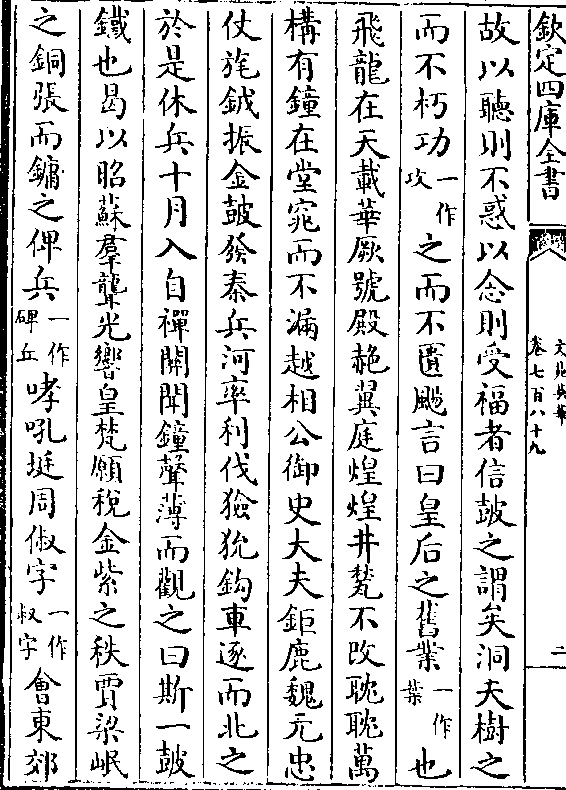 欽定四庫全書
文苑英華
卷七百八十九
二
故以聽則不惑以念則受福者信鼓之謂矣洞夫樹之
而不朽功一作攻之而不匱颺言曰皇后之舊業一作葉也
飛龍在天載華厥號殿赩翼庭煌煌井甃不改耽耽萬
構有鐘在堂窕而不漏越相公御史大夫鉅鹿魏元忠
仗旄鉞振金鼓發秦兵河率利伐獫狁鈎車逐而北之
於是休兵十月入自禪關聞鐘聲薄而觀之曰斯一鼓
鐵也曷以昭蘇羣聾光響皇梵願稅金紫之秩賈梁岷
之銅張而鏞之俾兵一作碑丘哮吼埏周俶字一作叔字會東郊